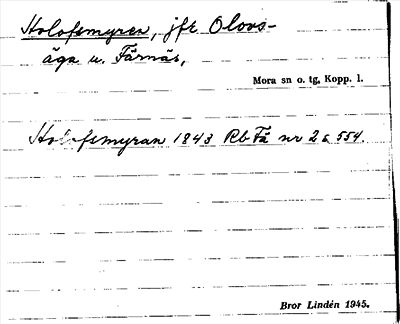 Holofsmyren, jfr Olovs-
äga u. Färnäs,
Mora sn o. tg, Kopp. l.
Holofsmyran 1843 Rb Fä nr 2 s. 554.
Bror Lindén 1945.